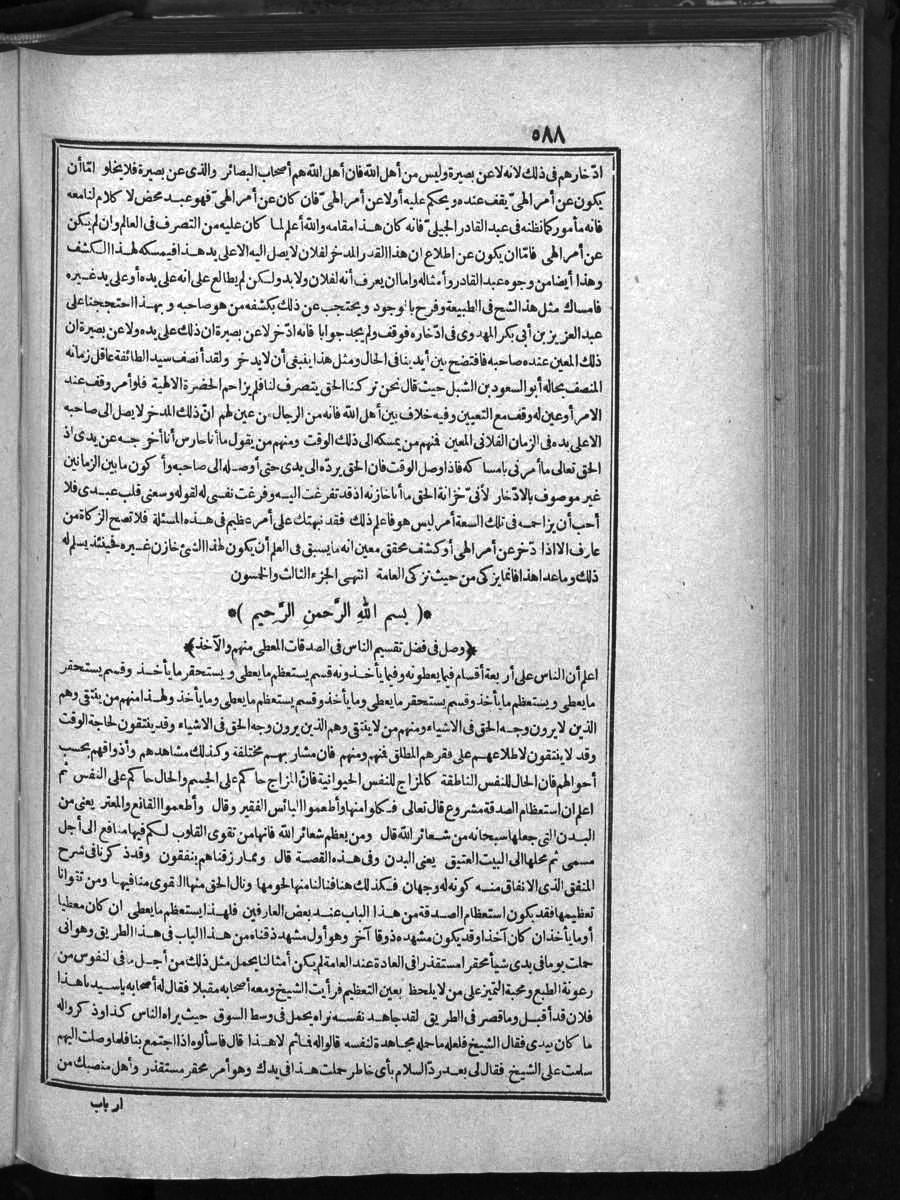 ٥٨٨
ادّخارهم فى ذلك لانه لا عن بصيرة وليس من أهل الله فان أهل الله هم أصحاب البصائر والذى عن بصيرة فلا يخلو امّا أن
يكون عن أمر الهىّ يقف عنده ويحكم عليه أو لا عن أمر الهىّ فان كان عن أمر الهىّ فهو عبد محض لا كلام لنا معه
فانه مأمور كما نظنه فى عبد القادر الجيلىّ فانه كان هذا مقامه والله أعلم لما كان عليه من التصرف فى العالم وان لم يكن
عن أمر الهى فامّا ان يكون عن اطلاع ان هذا القدر المدخر لفلان لا يصل اليه الا على يد هذا فيمسكه لهذا الكشف
وهذا أيضا من وجوه عبد القادر وأمثاله واما ان يعرف أنه لفلان ولا بد ولكن لم يطالع على انه على يده أو على يد غيره
فامساك مثل هذا الشح فى الطبيعة وفرح بالوجود ويحتجب عن ذلك بكشفه من هو صاحبه وبهذا احتججنا على
عبد العزيز بن أبى بكر المهدوى فى ادّخاره فوقف ولم يجد جوابا فانه ادّخر لا عن بصيرة ان ذلك على يده ولا عن بصيرة ان
ذلك المعين عنده صاحبه فافتضح بين أيدينا فى الحال ومثل هذا ينبغى أن لا يدخر ولقد أنصف سيد الطائفة عاقل زمانه
المنصف بحاله أبو السعود بن الشبل حيث قال نحن تركنا الحق يتصرف لنا فلم يزاحم الحضرة الالهية فلو أمر وقف عند
الامر أو عين له وقف مع التعيين وفيه خلاف بين أهل الله فانه من الرجال من عين لهم انّ ذلك المدخر لا يصل الى صاحبه
الا على يده فى الزمان الفلانى المعين فمنهم من يمسكه الى ذلك الوقت ومنهم من يقول ما أنا حارس أنا أخرجه عن يدى اذ
الحق تعالى ما أمرنى بامساكه فاذا وصل الوقت فان الحق يردّه الى يدى حتى أوصله الى صاحبه وأكون ما بين الزمانين
غير موصوف بالادّخار لأنى خزانة الحق ما أنا خازنه اذ قد تفرغت اليه وفرغت نفسى له لقوله وسعنى قلب عبدى فلا
أحب أن يزاحمه فى تلك السعة أمر ليس هو فاعلم ذلك فقد نبهتك على أمر عظيم فى هذه المسئلة فلا تصح الزكاة من
عارف الا اذا ادّخر عن أمر الهى أو كشف محقق معين انه ما يسبق فى العلم أن يكون لهذا الشئ خازن غيره فحينئذ يسلم له
ذلك وما عدا هذا فانما يزكى من حيث تزكى العامة انتهى الجزء الثالث والخمسون
*( بسم الله الرَّحمنِ الرَّحيمِ )*
﴿وصل فى فضل تقسيم الناس فى الصدقات المعطى منهم والآخذ﴾
اعلم أن الناس على أربعة أقسام فيما يعطونه وفيما يأخذونه قسم يستعظم ما يعطى ويستحقر ما يأخذ وقسم يستحقر
ما يعطى ويستعظم ما يأخذ وقسم يستحقر ما يعطى وما يأخذ وقسم يستعظم ما يعطى وما يأخذ ولهذا منهم من ينتقى وهم
الذين لا يرون وجه الحق فى الاشياء ومنهم من لا ينتقى وهم الذين يرون وجه الحق فى الاشياء وقد ينتقون لحاجة الوقت
وقد لا ينتقون لاطلاعهم على فقرهم المطلق فمنهم ومنهم فان مشاربهم مختلفة وكذلك مشاهدهم وأذواقهم بحسب
أحوالهم فان الحال للنفس الناطقة كالمزاج للنفس الحيوانية فانّ المزاج حاكم على الجسم والحال حاكم على النفس ثم
اعلم ان استعظام الصدقة مشروع قال تعالى فكلوا منها وأطعموا البائس الفقير وقال وأطعموا القانع والمعتر يعنى من
البدن التى جعلها سبحانه من شعائر الله قال ومن يعظم شعائر الله فانها من تقوى القلوب لكم فيها منافع الى أجل
مسمى ثم محلها الى البيت العتيق يعنى البدن وفى هذه القصة قال ومما رزقناهم ينفقون وقد ذكرنا فى شرح
المنفق الذى الانفاق منه كونه له وجهان فكذلك هنا فنالنا منها لحومها ونال الحق منها التقوى منا فيها ومن تقوانا
تعظيمها فقد يكون استعظام الصدقة من هذا الباب عند بعض العارفين فلهذا يستعظم ما يعطى ان كان معطيا
أو ما يأخذ ان كان آخذا وقد يكون مشهده ذوقا آخر وهو أول مشهد ذقناه من هذا الباب فى هذا الطريق وهو انى
حملت يوما فى يدى شيأ محقرا مستقذرا فى العادة عند العامة لم يكن أمثالنا يحمل مثل ذلك من أجل ما فى النفوس من
رعونة الطبع ومحبة التميز على من لا يلحظ بعين التعظيم فرأيت الشيخ ومعه أصحابه مقبلا فقال له أصحابه يا سيدنا هذا
فلان قد أقبل وما قصر فى الطريق لقد جاهد نفسه نراه يحمل فى وسط السوق حيث يراه الناس كذا وذكروا له
ما كان بيدى فقال الشيخ فلعله ما حمله مجاهدة لنفسه قالوا له فما ثم الا هذا قال فاسألوه اذا اجتمع بنا فلما وصلت اليهم
سلمت على الشيخ فقال لى بعد ردّ السلام بأى خاطر حملت هذا فى يدك وهو أمر محقر مستقذر وأهل منصبك من
ارباب